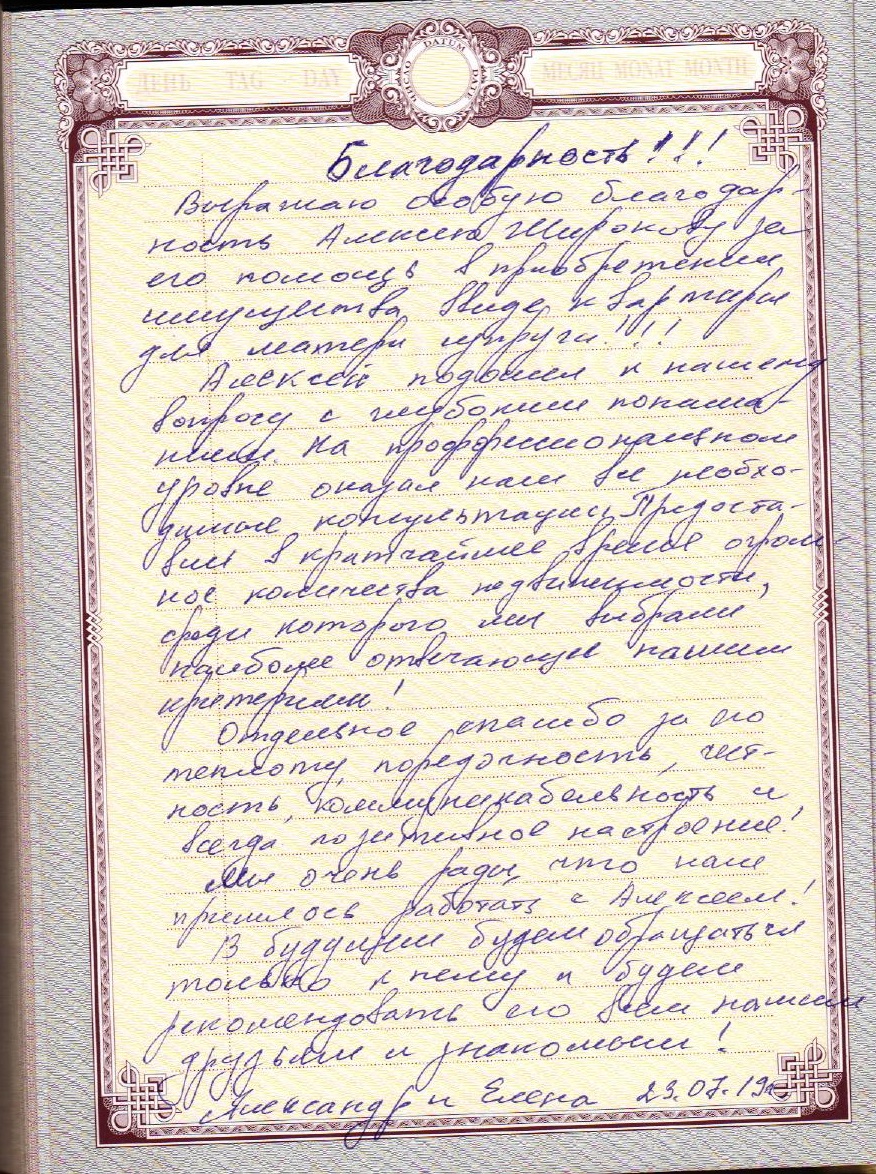 ДЕНЬ TAG DAY
ЧИСЛО DATUM DATE
МЕСЯЦ MONAT MONTH
Благодарность!!!
Выражаю особую благодар-
ность Алексею Широкову за
его помощь в приобретении
имущества ввиде квартиры
для матери супруги!!!
Алексей подошел к нашему
вопросу с глубоким понима-
нием. На профессиональном
уровне оказал нам все необхо-
димые консультации. Предоста-
вил в кратчайшее время огром-
ное количества недвижимости,
среди которого мы выбрали
наиболее отвечающую нашим
критериям!
Отдельное спасибо за его
теплоту, порядочность, чест-
ность, коммуникабельность и
всегда позитивное настроение!
Мы очень рады, что нам
пришлось работать с Алексеем!
В будущем будем обращаться
только к нему и будем
рекомендовать его всем нашим
друзьям и знакомым!
Александр и Елена 23.07.19г.